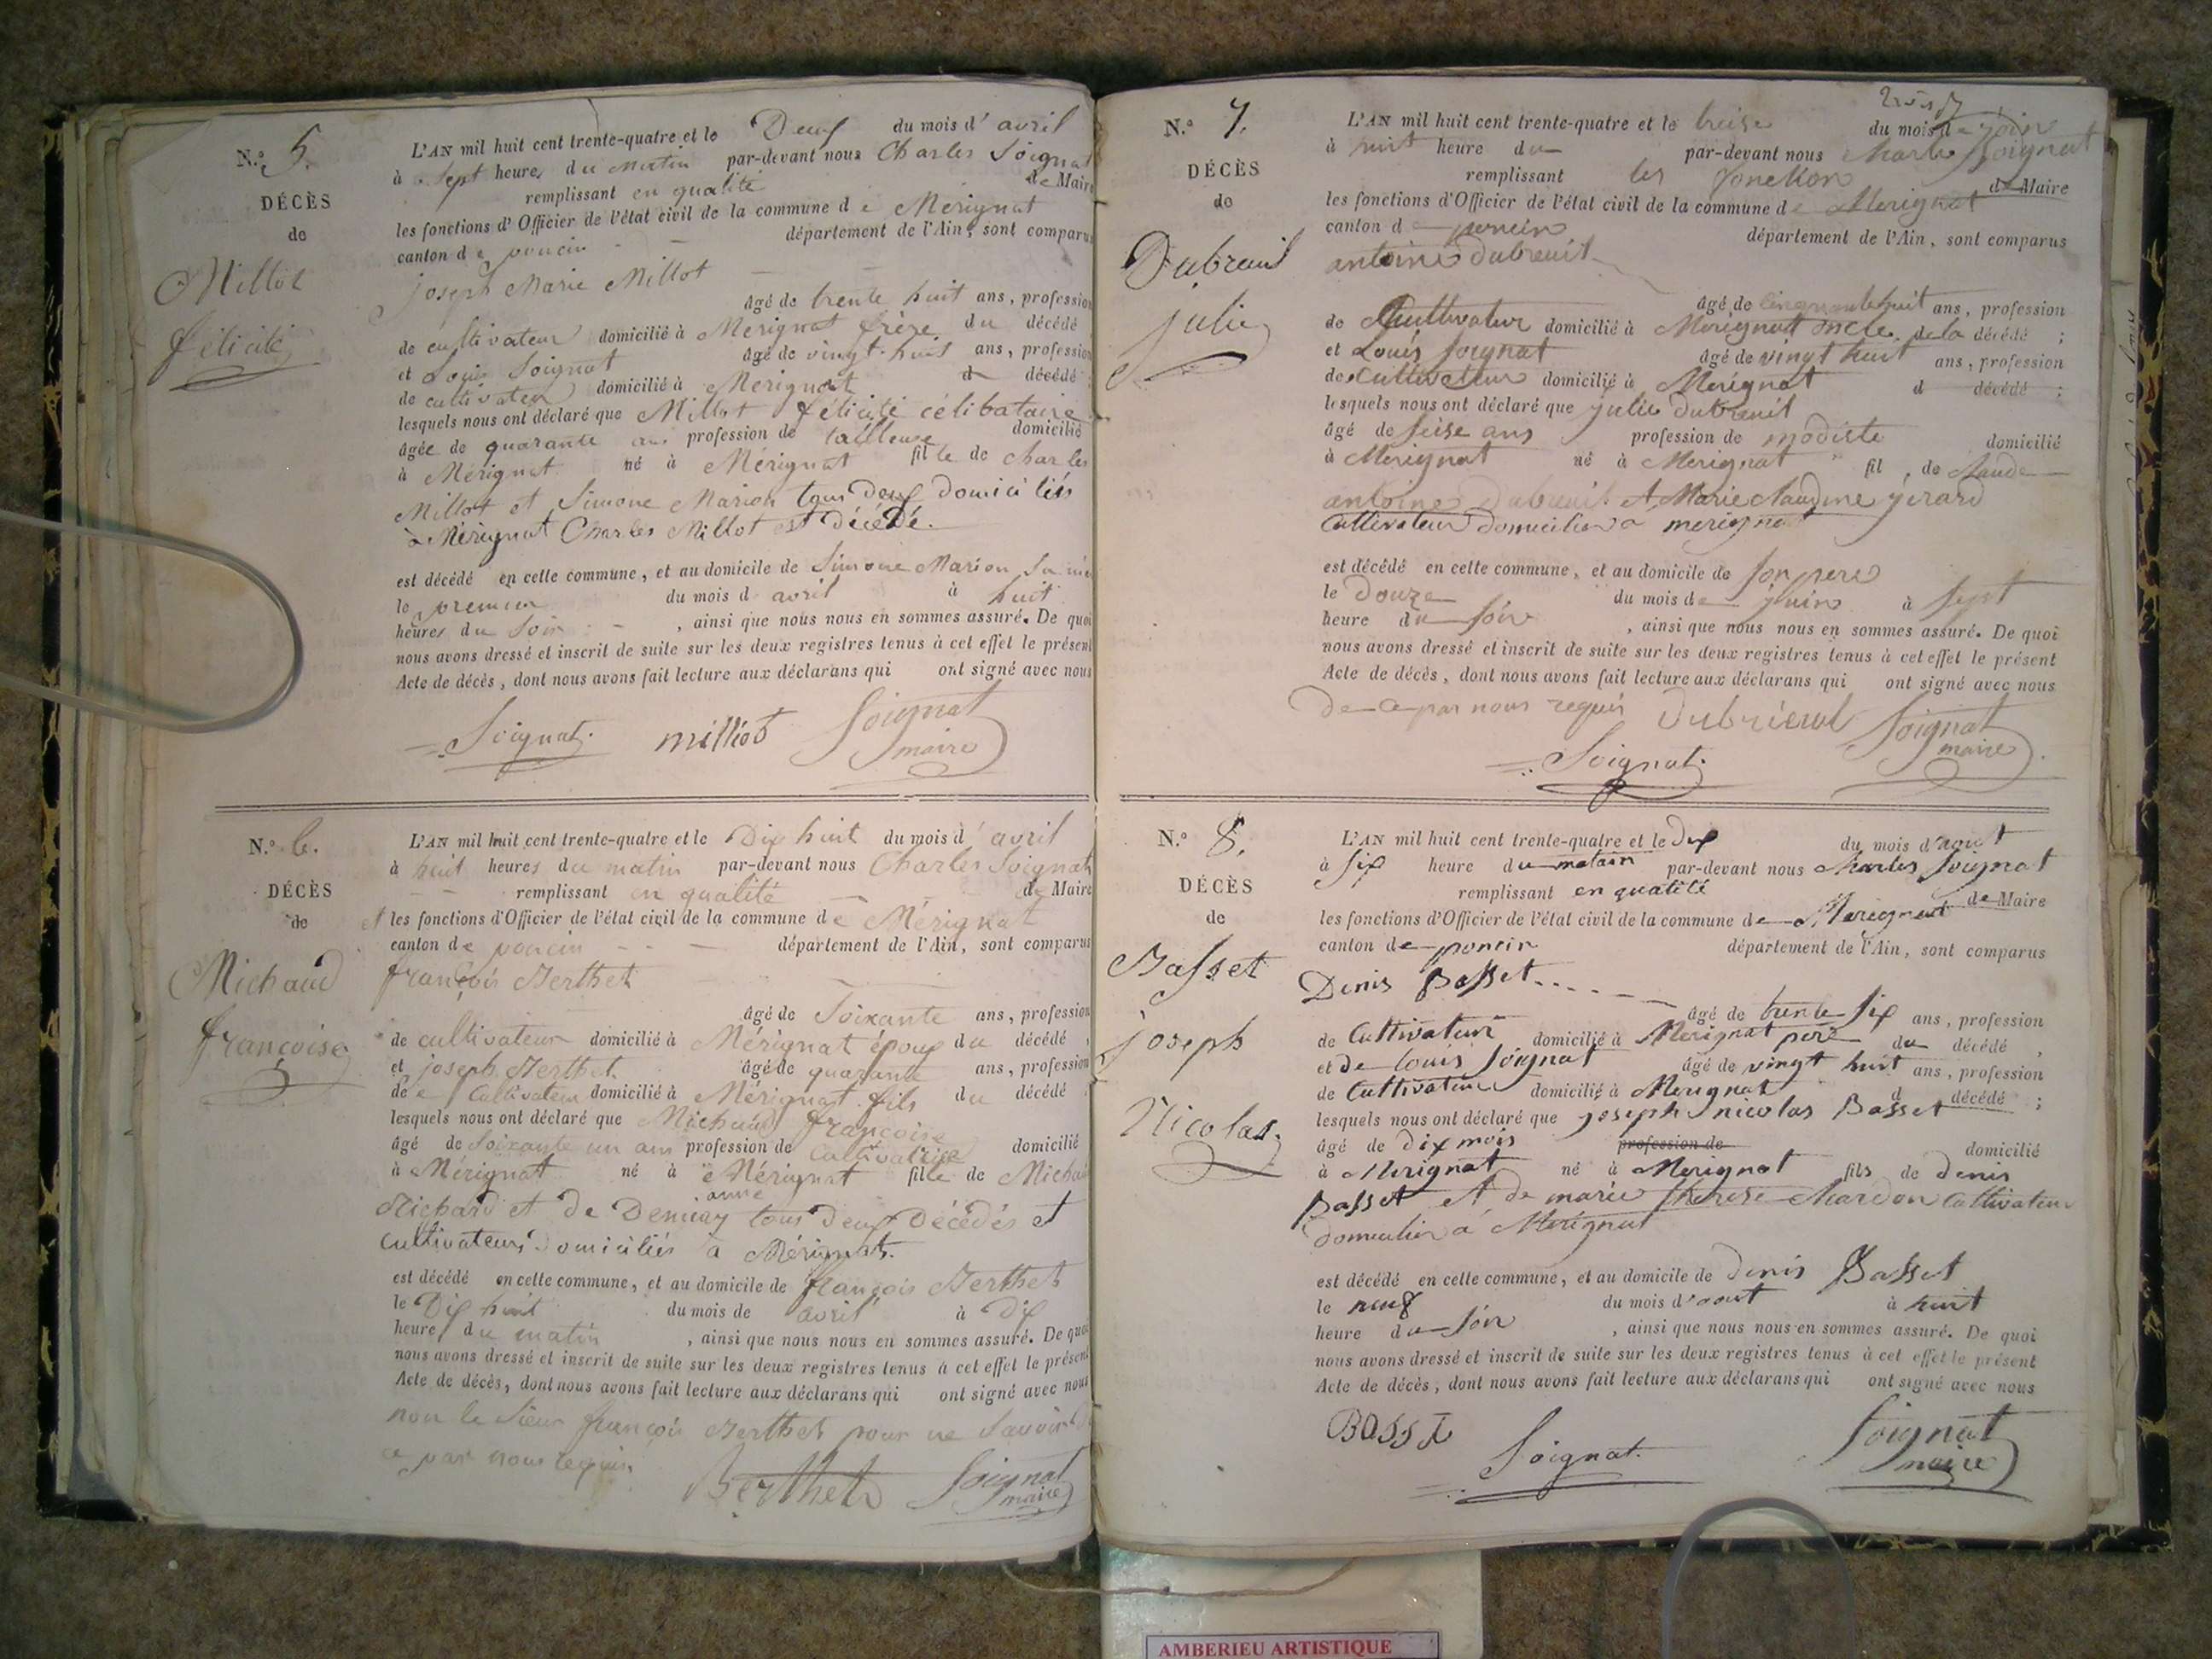 N.º 5.
DÉCÈS
de
Millot
félicité
L'AN mil huit cent trente-quatre et le Deux du mois d' avril
à sept heures du matin par-devant nous Charles Soignat
remplissant en qualité de Maire
les fonctions d'Officier de l'état civil de la commune d e Mérignat
canton d e poncin département de l'Ain, sont comparus
joseph Marie Millot
âgé de trente huit ans, profession
de cultivateur domicilié à Merignat frère du décédé
et Louis Soignat âgé de vingt-huit ans, profession
de cultivateur domicilié à Merignat d décédé ;
lesquels nous ont déclaré que Millot félicité célibataire
âgée de quarante ans profession de tailleuse domicilié
à Mérignat né à Mérignat fille de charles
Millot et Simone Marion tous deux domiciliés
à Mérignat Charles Millot est décédé.
est décédé en cette commune, et au domicile de Simone Marion sa mè
le premier du mois d avril à huit
heures du soir , ainsi que nous nous en sommes assuré. De quoi
nous avons dressé et inscrit de suite sur les deux registres tenus à cet effet le présent
Acte de décès, dont nous avons fait lecture aux déclarans qui ont signé avec nous
Soignat. milliot Soignat
maire
N.º 6.
DÉCÈS
de
Michaud
françoise
L'AN mil huit cent trente-quatre et le Dix huit du mois d' avril
à huit heures du matin par-devant nous Charles Soignat
remplissant en qualité de Maire
et les fonctions d'Officier de l'état civil de la commune d e Mérignat
canton de poncin département de l'Ain, sont comparus
françois Berthet
âgé de Soixante ans, profession
de cultivateur domicilié à Mérignat époux du décédé
et joseph Berthet âgé de quarante ans, profession
de Cultivateur domicilié à Mérignat fils du décédé
lesquels nous ont déclaré que Michaud françoise
âgé de Soixante un ans profession de Cultivatrice domicilié
à Mérignat né à Mérignat fille de Michau
anne
Richard et de Demuay tous deux Décédés et
cultivateurs Domiciliés à Mérignat.
est décédé en cette commune, et au domicile de françois Berthet
le Dix huit du mois de avril à Dix
heure du matin , ainsi que nous nous en sommes assuré. De quoi
nous avons dressé et inscrit de suite sur les deux registres tenus à cet effet le présent
Acte de décès, dont nous avons fait lecture aux déclarans qui ont signé avec nous
non le Sieur françois Berthet pour ne Savoir
ce par nous requis
Berthet Soignat
maire
N.º 7.
DÉCÈS
de
Dubreuil
julie
L'AN mil huit cent trente-quatre et le treise du mois de join
à huit heure du par-devant nous Charles Soignat
remplissant les fonction de Maire
les fonctions d'Officier de l'état civil de la commune de Merignat
canton d e poncin département de l'Ain, sont comparus
antoine dubreuil
âgé de Cinquante huit ans, profession
de Cultivateur domicilié à Merignat oncle de la décédé ;
et Louis Soignat âgé de vingt huit ans, profession
de Cultivateur domicilié à Merignat d décédé ;
lesquels nous ont déclaré que julie dubreuil
âgé de seise ans profession de modiste domicilié
à Merignat né à Merignat fil , de Claude
antoine Dubreuil et Marie Claudine jerard
Cultivateur domicilier a merignat
est décédé en cette commune, et au domicile de son pere
le Douze du mois de juin à sept
heure du soir , ainsi que nous nous en sommes assuré. De quoi
nous avons dressé et inscrit de suite sur les deux registres tenus à cet effet le présent
Acte de décès, dont nous avons fait lecture aux déclarans qui ont signé avec nous
De ce par nous requis Dubrieul Soignat
maire
Soignat.
N.º 8.
DÉCÈS
de
Basset
joseph
Nicolas.
L'AN mil huit cent trente-quatre et le dix du mois d'aout
à six heure du matain par-devant nous Charles Soignat
remplissant en qualité de Maire
les fonctions d'Officier de l'état civil de la commune de Merignat
canton de poncin département de l'Ain, sont comparus
Denis Basset
âgé de trente six ans, profession
de Cultivateur domicilié à Merignat pere du décédé ,
et de louis Soignat âgé de vingt huit ans, profession
de Cultivateur domicilié à Merignat d décédé ;
lesquels nous ont déclaré que joseph nicolas Basset
âgé de dix mois profession de domicilié
à Merignat né à Merignat fils de denis
Basset et de marie therese Chardon Cultivateur
domicilier a Merignat
est décédé en cette commune, et au domicile de denis Basset
le neuf du mois d'aout à huit
heure du soir , ainsi que nous nous en sommes assuré. De quoi
nous avons dressé et inscrit de suite sur les deux registres tenus à cet effet le présent
Acte de décès, dont nous avons fait lecture aux déclarans qui ont signé avec nous
Soignat. Soignat
maire
AMBERIEU ARTISTIQUE